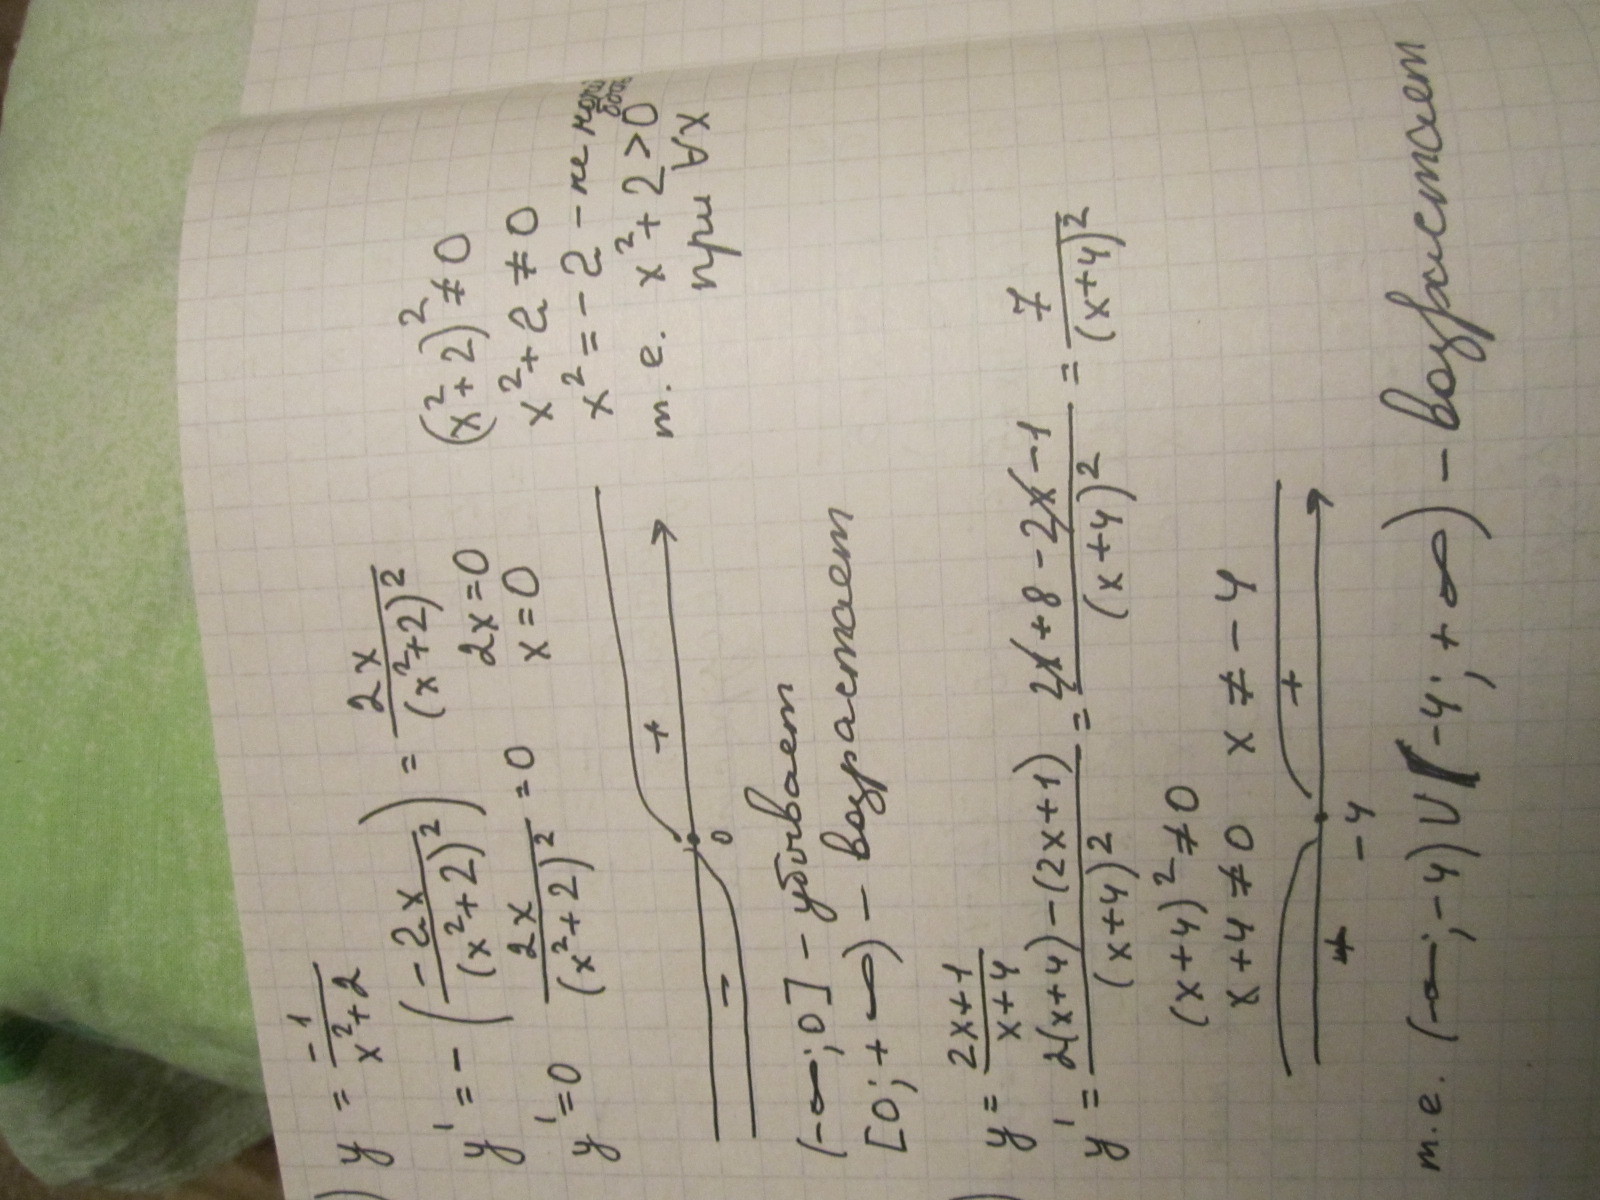 y = -1/(x²+2)
y' = -(-2x/(x²+2)²) = 2x/(x²+2)²
(x²+2)² ≠ 0
y' = 0 2x/(x²+2)² = 0 2x = 0
x = 0
x²+2 ≠ 0
x² = -2 - не
т.е. x²+2 > 0
при ∀x
- +
0
(-∞; 0] - убывает
[0; +∞) - возрастает
y = (2x+1)/(x+4)
y' = (2(x+4) - (2x+1))/(x+4)² = (2x+8-2x-1)/(x+4)² = 7/(x+4)²
(x+4)² ≠ 0
x+4 ≠ 0 x ≠ -4
+ +
-4
т.е. (-∞; -4) U (-4; +∞) - возрастает